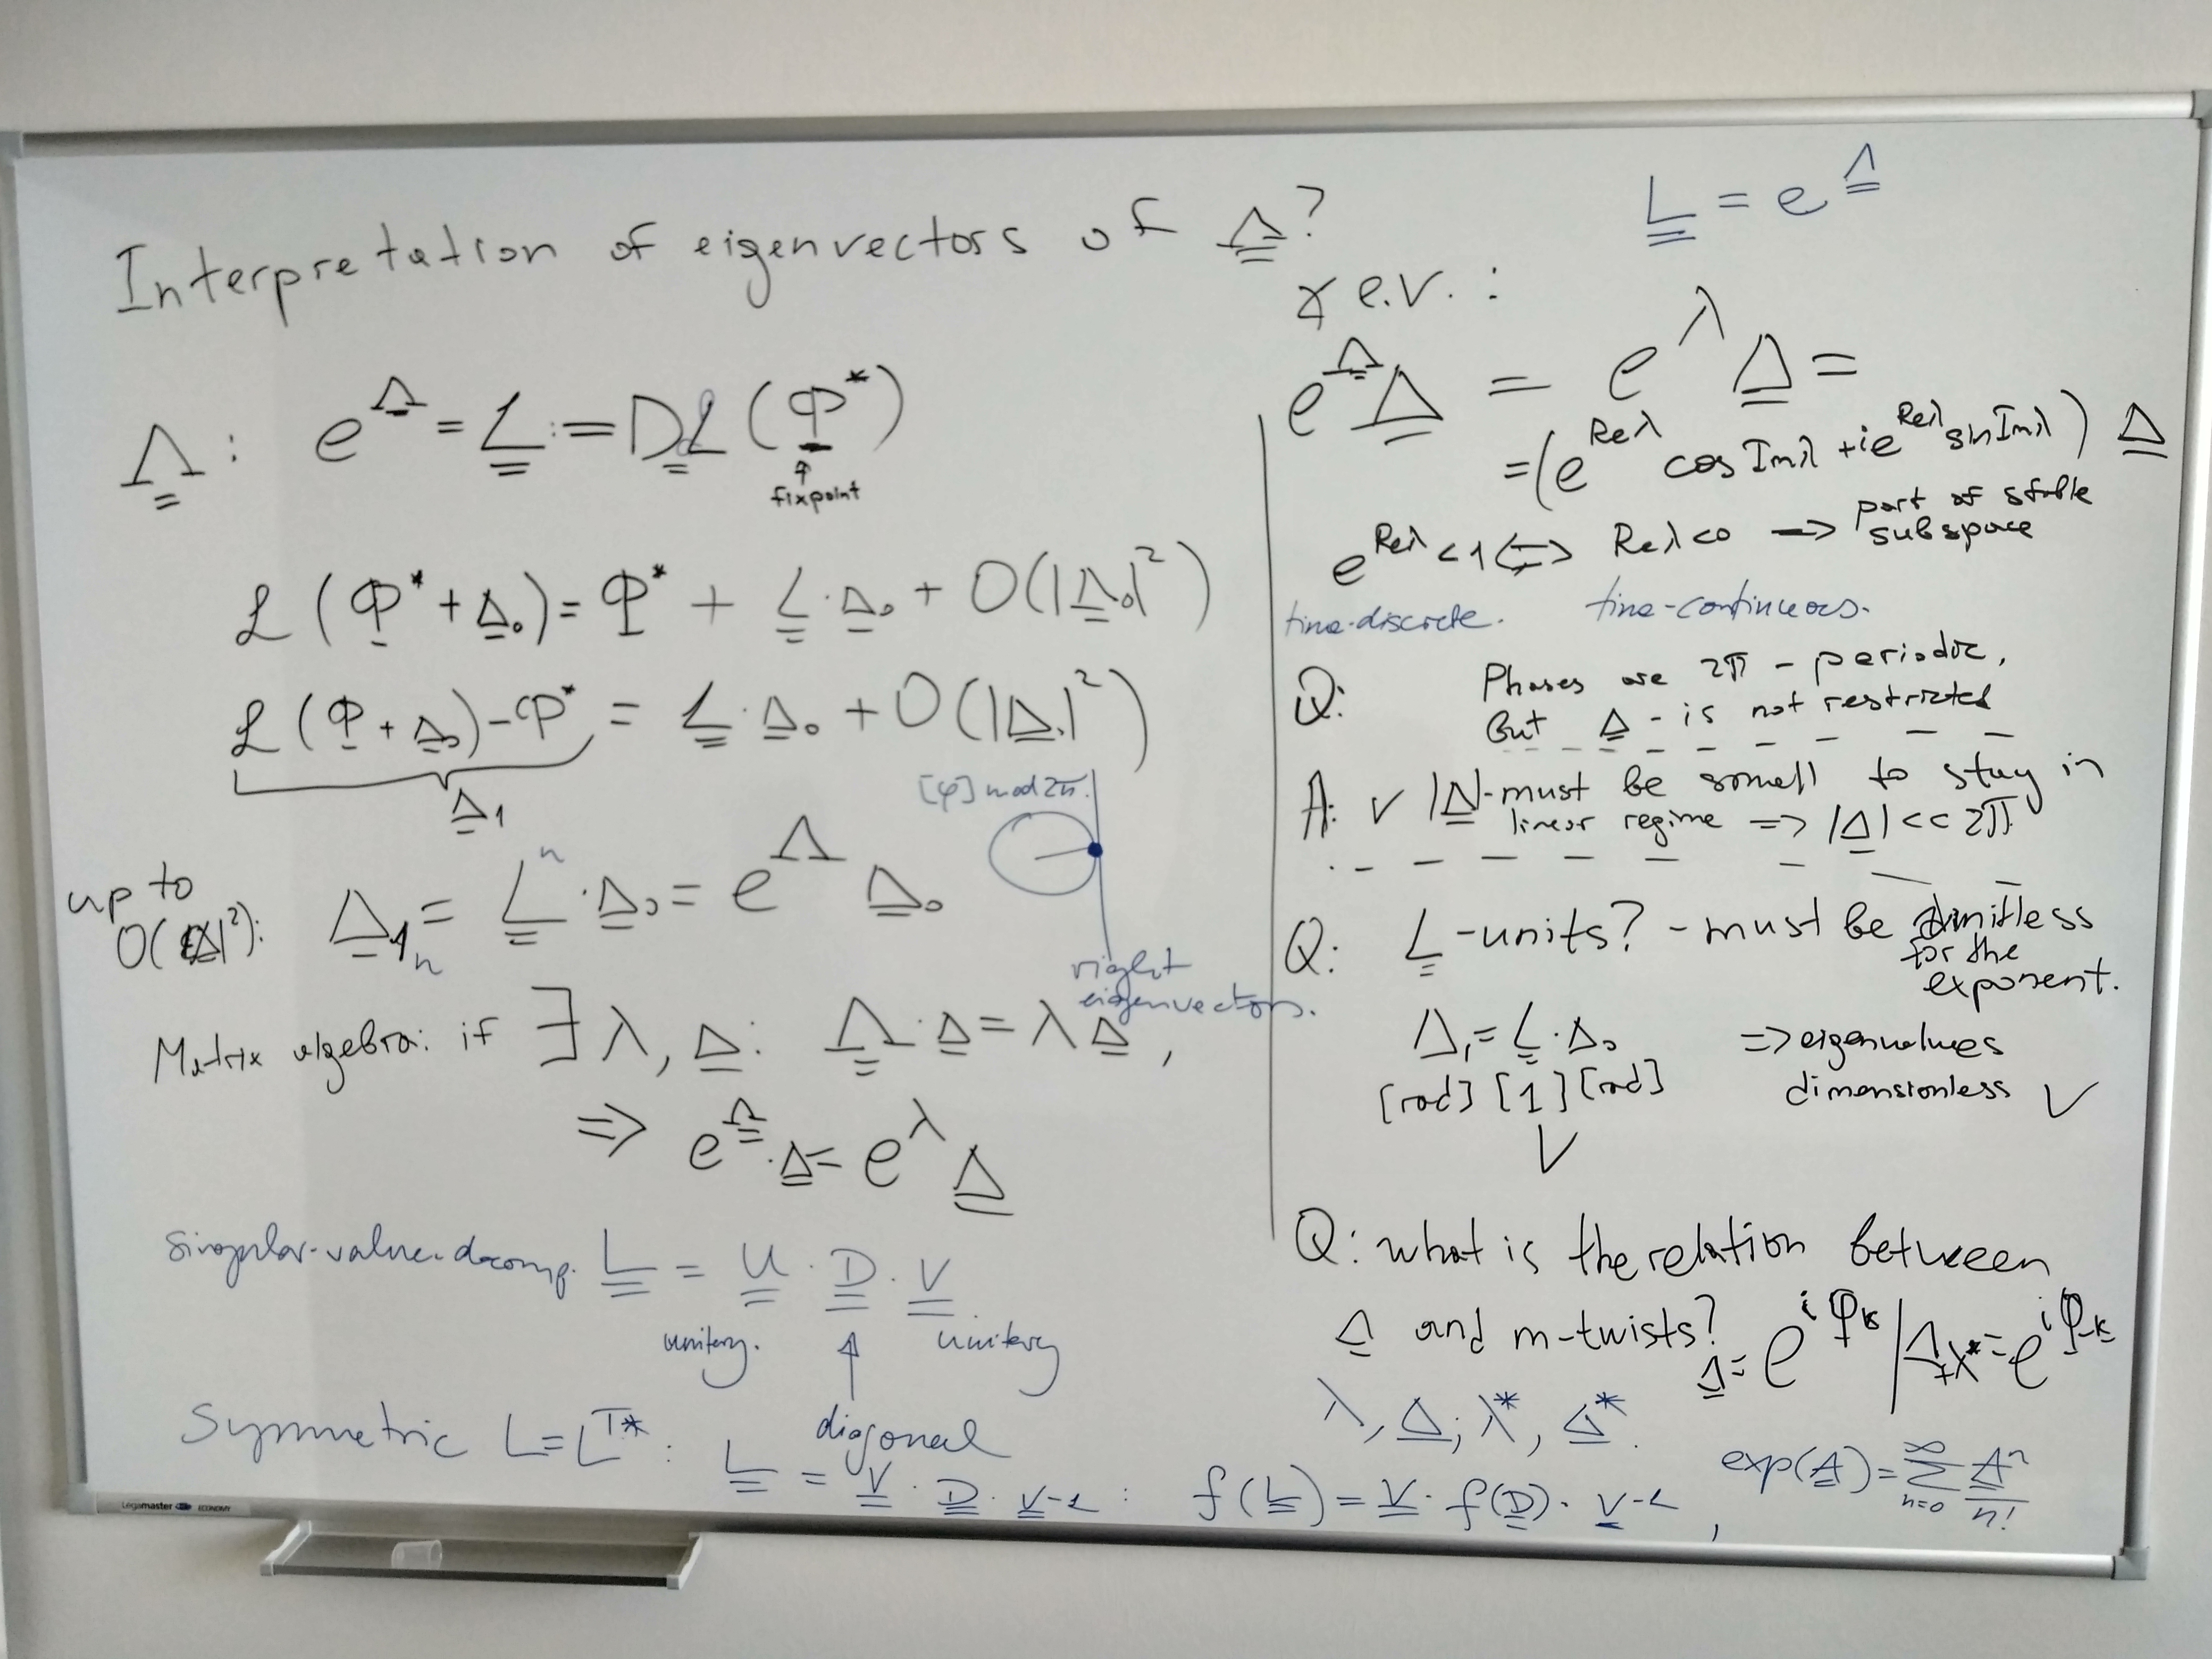 Interpretation of eigenvectors of Λ?
Λ: e^Λ = L := Dℒ(Φ*)
fixpoint
ℒ(Φ* + Δ₀) = Φ* + L·Δ₀ + O(|Δ₀|²)
ℒ(Φ + Δ₀) − Φ* = L·Δ₀ + O(|Δ₀|²)
Δ₁
[φ] mod 2π.
up to
O(|Δ|²): Δ₁ₙ = Lⁿ·Δ₀ = e^Λ Δ₀
right
eigenvectors.
Matrix algebra: if ∃ λ, Δ: Λ·Δ = λΔ,
⇒ e^Λ·Δ = e^λ Δ
singular-value-decomp. L = U·D·V
unitary. unitary
diagonal
Symmetric L = L^T*: L = V·D·V⁻¹: f(L) = V·f(D)·V⁻¹, exp(A) = Σ_{n=0}^{∞} Aⁿ/n!
L = e^Λ
e.v.:
e^Λ Δ = e^λ Δ =
= (e^{Reλ} cos Imλ + i e^{Reλ} sin Imλ) Δ
e^{Reλ} < 1 ⇔ Reλ < 0 → part of stable
subspace
time-discrete. time-continuous.
Q: Phases are 2π - periodic,
But Δ - is not restricted
A: ✓ |Δ| - must be small to stay in
linear regime ⇒ |Δ| << 2π
Q: L - units? - must be unitless
for the
exponent.
Δ₁ = L·Δ₀ ⇒ eigenvalues
[rad] [1] [rad] dimensionless ✓
✓
Q: what is the relation between
Δ and m-twists? Δ = e^{iφ_k} | Δ_{+}* = e^{iφ_{-k}}
λ, Δ; λ*, Δ*.
Legamaster ECONOMY